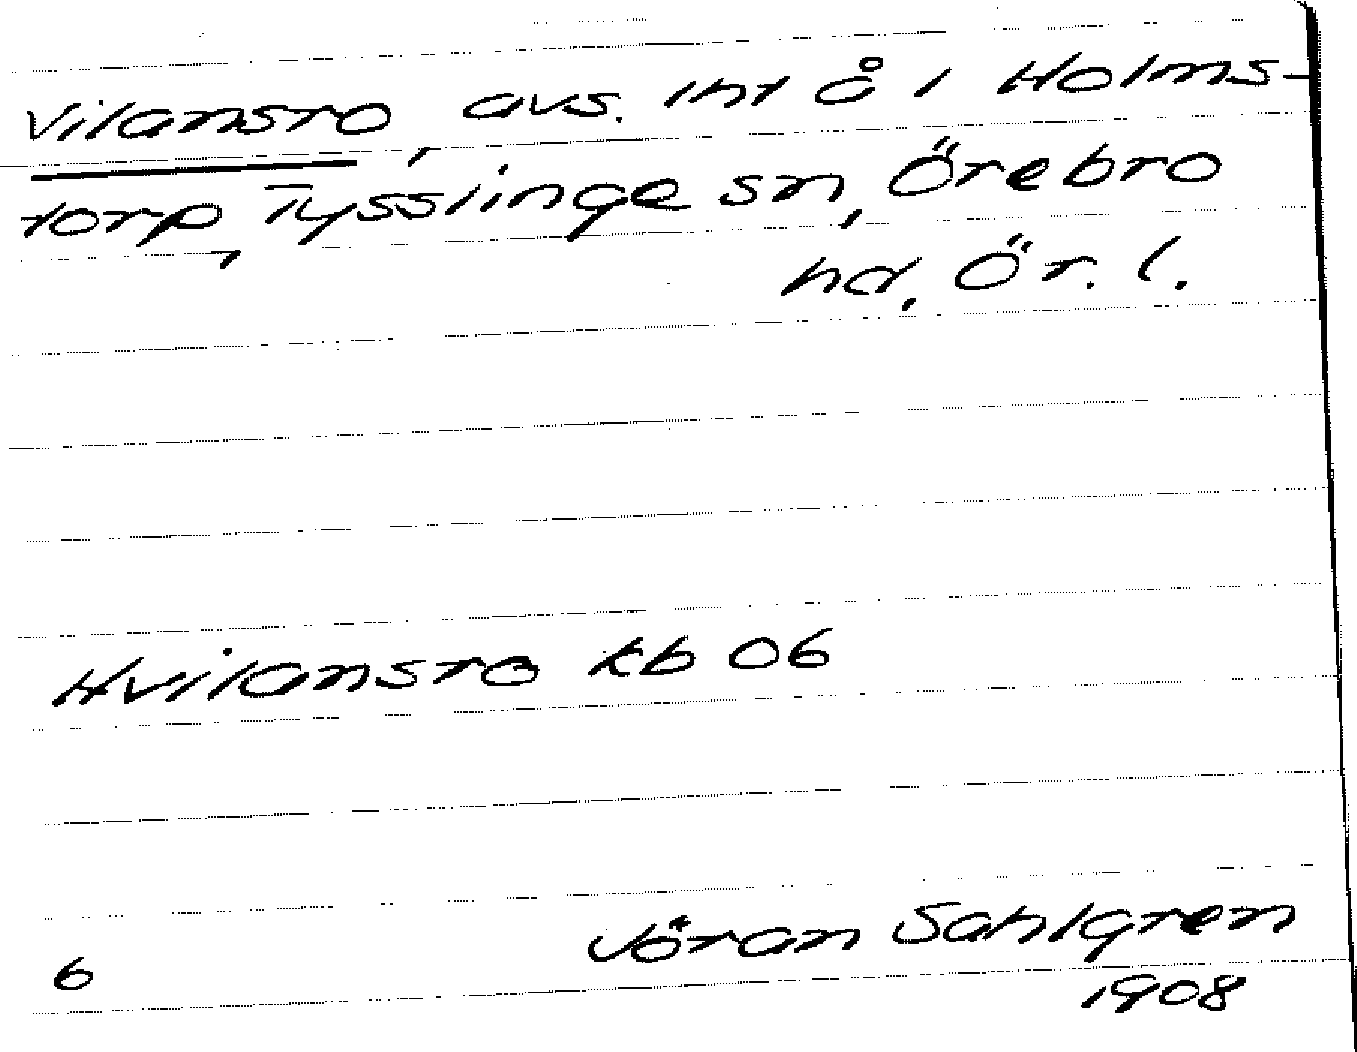 Vilansro, avs. lht å i Holms-
torp, Tysslinge sn, Örebro
hd, Ör. l.
Hvilansro kb 06
Jöran Sahlgren
6
1908